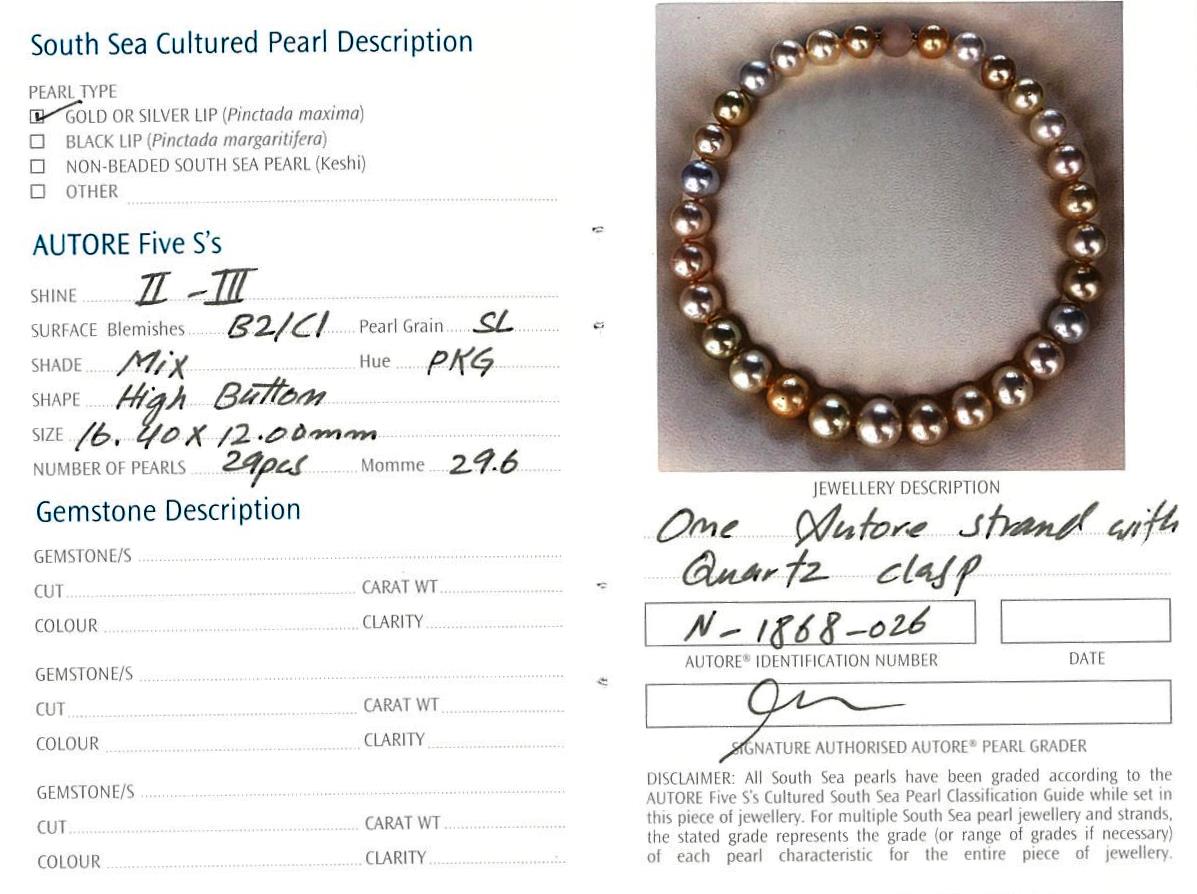 South Sea Cultured Pearl Description
PEARL TYPE
GOLD OR SILVER LIP (Pinctada maxima)
BLACK LIP (Pinctada margaritifera)
NON-BEADED SOUTH SEA PEARL (Keshi)
OTHER
AUTORE Five S's
SHINE II - III
SURFACE Blemishes B2/C1 Pearl Grain SL
SHADE Mix Hue PKG
SHAPE High Button
SIZE 16.40 X 12.00mm
NUMBER OF PEARLS 29pcs Momme 29.6
Gemstone Description
GEMSTONE/S
CUT CARAT WT
COLOUR CLARITY
GEMSTONE/S
CUT CARAT WT
COLOUR CLARITY
GEMSTONE/S
CUT CARAT WT
COLOUR CLARITY
JEWELLERY DESCRIPTION
One Autore strand with
Quartz clasp
N-1868-026
AUTORE® IDENTIFICATION NUMBER DATE
SIGNATURE AUTHORISED AUTORE® PEARL GRADER
DISCLAIMER: All South Sea pearls have been graded according to the
AUTORE Five S's Cultured South Sea Pearl Classification Guide while set in
this piece of jewellery. For multiple South Sea pearl jewellery and strands,
the stated grade represents the grade (or range of grades if necessary)
of each pearl characteristic for the entire piece of jewellery.